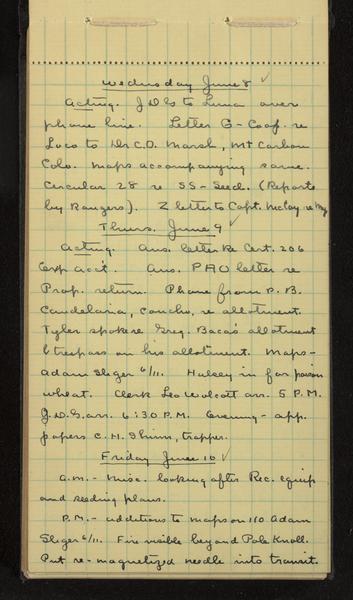 Wednesday June 8
Acting. J D G to Luna over
phone line. Letter G-Coop. re
Loco to Dr C.O. Marsh, Mt Carbon
Colo. Maps accompanying same.
Circular 28 re SS-Seed. (Reports
by Rangers). 2 letter to Capt. McCoy re
Thurs. June 9
Acting. Ans. letter Re Cert. 206
Exp acc't. Ans. PAO letter re
Prop. return. Phone from P. B.
Candelaria, Concho, re allotment.
Tyler spoke re Greg. Baca's allotment
& trespass on his allotment. Maps-
Adam Sliger 6/11. Hulsey in for poison
wheat. Clerk Leo Wolcott arr. 5 P.M.
J.D.G. arr. 6:30 P.M. Evening - app.
papers C.H. Shinn, trapper.
Friday June 10
a.m. - Misc. looking after Rec. equip
and seeding plans.
P.M. - additions to maps on 110 Adam
Sliger 6/11. Fire visible beyond Pole Knoll.
Put re-magnetized needle into transit.